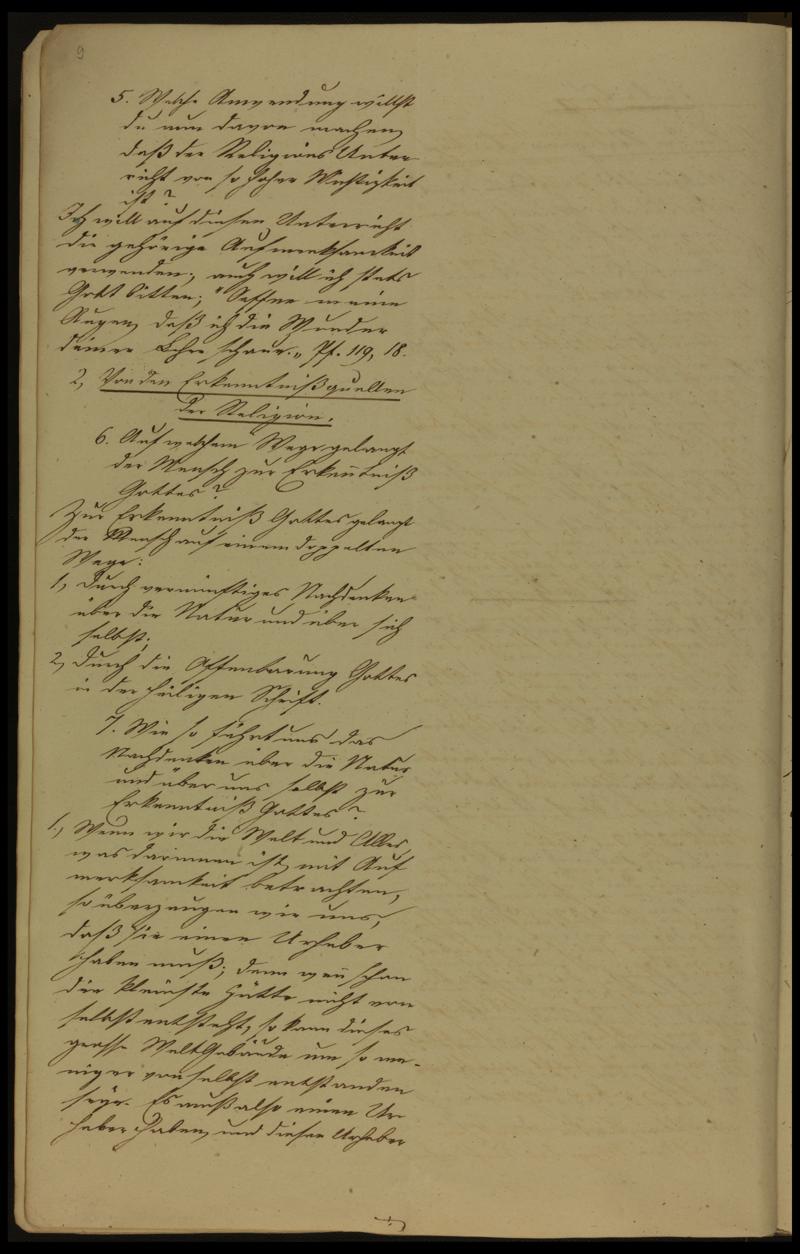 9
5. Welche Anwendung willst
du nun davon machen,
daß der Religions Unter-
richt von so hoher Wichtigkeit
ist?
Ich will auf diesen Unterricht
die gehörige Aufmerksamkeit
verwenden; auch will ich stets
Gott bitten; "Oeffne meine
Augen, daß ich die Wunder
deiner Lehre schaue." Ps. 119, 18.
2, Von den Erkenntnißquellen
der Religion.
6. Auf welchem Wege gelangt
der Mensch zur Erkenntniß
Gottes?
Zur Erkenntniß Gottes gelangt
der Mensch auf einem doppelten
Wege:
1, durch vernünftiges Nachdenken
über die Natur und über sich
selbst;
2, durch die Offenbarung Gottes
in der heiligen Schrift.
7. Wie so führt uns das
Nachdenken über die Natur
und über uns selbst zur
Erkenntniß Gottes?
1., Wenn wir die Welt und Alles,
was darinnen ist, mit Auf
merksamkeit betrachten,
so überzeugen wir uns,
daß sie einen Urheber
haben muß; denn wen̅ schon
die kleinste Hütte nicht von
selbst entsteht, so kann dieses
grosse WeltGebäude um so we-
niger von selbst entstanden
seyn. Es muß also einen Ur-
heber haben, und diesen Urheber